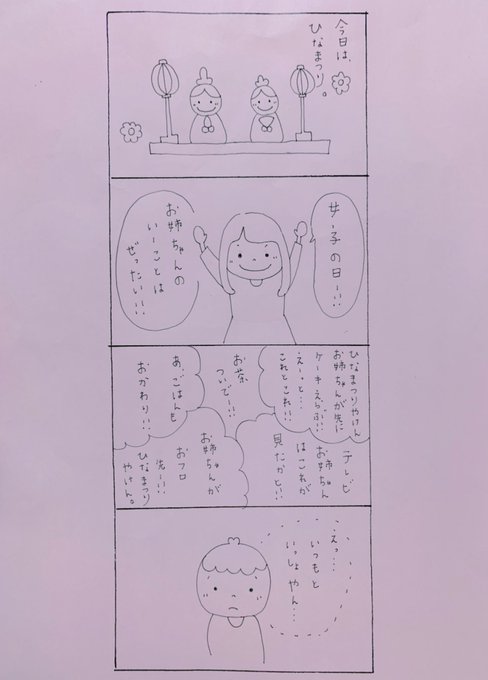 今日は、
ひなまつり。
女子の日ー!!
お姉ちゃんの
いーことは
ぜったいー!!
ひなまつりやけん
お姉ちゃんが先に
ケーキえらぶー!!
えーっと…
これとこれー!!
お茶
ついでー!!
あ、ごはんも
おかわりー!!
テレビ
お姉ちゃん
はこれが
見たかとー!!
お姉ちゃんが
おフロ
先ー!!
ひなまつり
やけん。
えっ…
いつもと
いっしょやん…